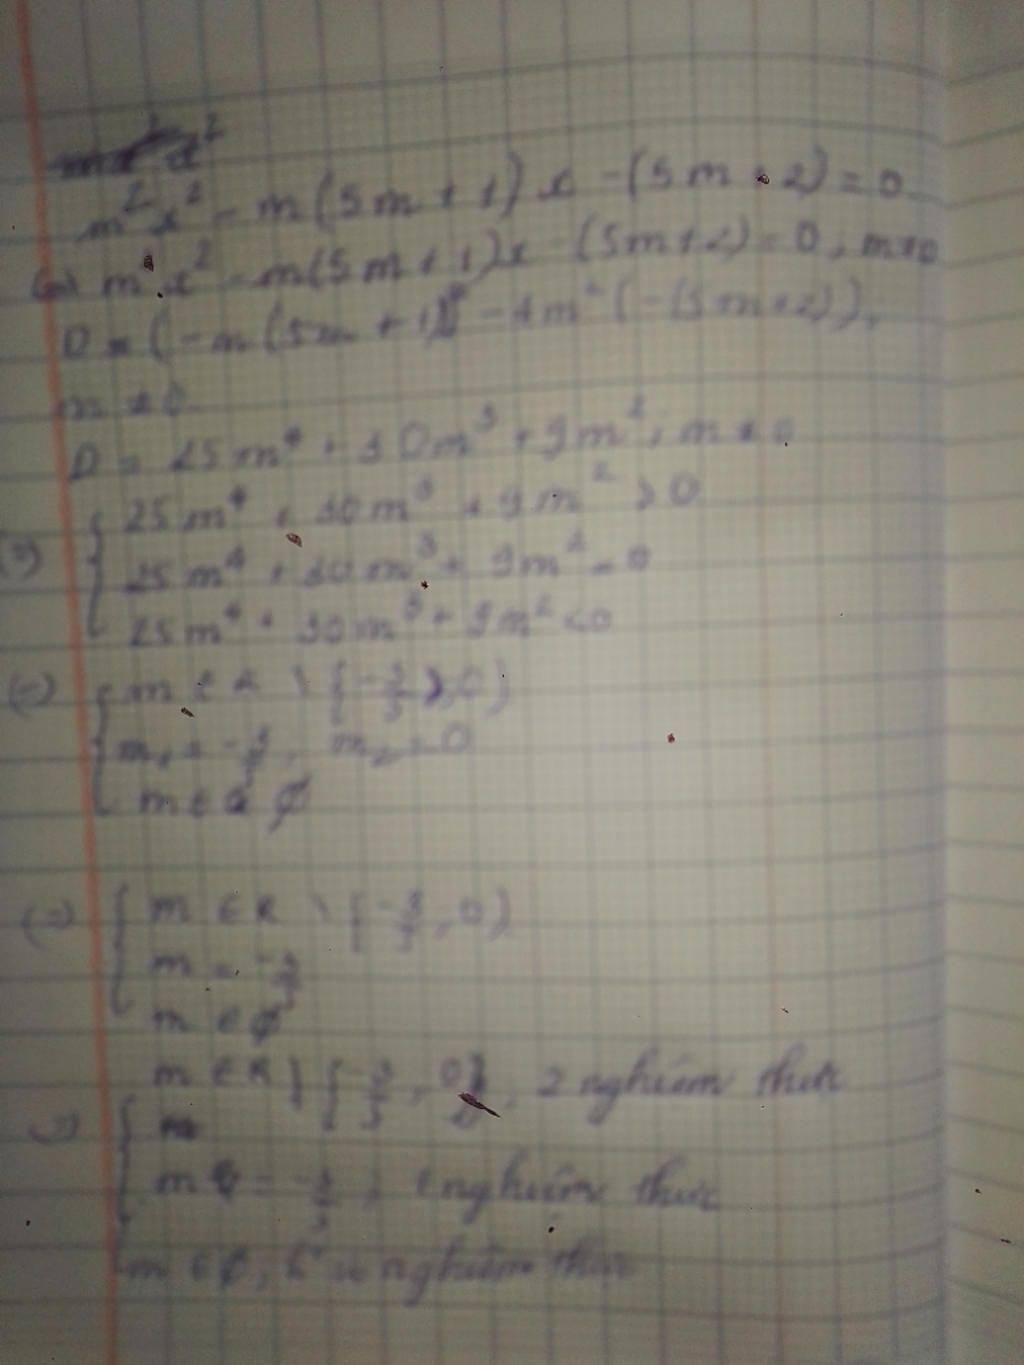 m²x² - m(5m + 1)x - (5m + 2) = 0
(=) m²x² - m(5m + 1)x - (5m + 2) = 0, m ≠ 0
D = (-m(5m + 1))² - 4m²(-(5m + 2)),
m ≠ 0
D = 25m⁴ + 30m³ + 9m², m ≠ 0
25m⁴ + 30m³ + 9m² > 0
(=) { 25m⁴ + 30m³ + 9m² = 0
25m⁴ + 30m³ + 9m² < 0
(=) { m ∈ R \ {-3/5, 0}
m₁ = -3/5, m₂ = 0
m ∈ ∅
(=) { m ∈ R \ {-3/5, 0}
m = -3/5
m ∈ ∅
m ∈ R \ {-3/5, 0}, 2 nghiệm thực
(=) { m
m = -3/5, 1 nghiệm thực
m ∈ ∅, nghiệm thực